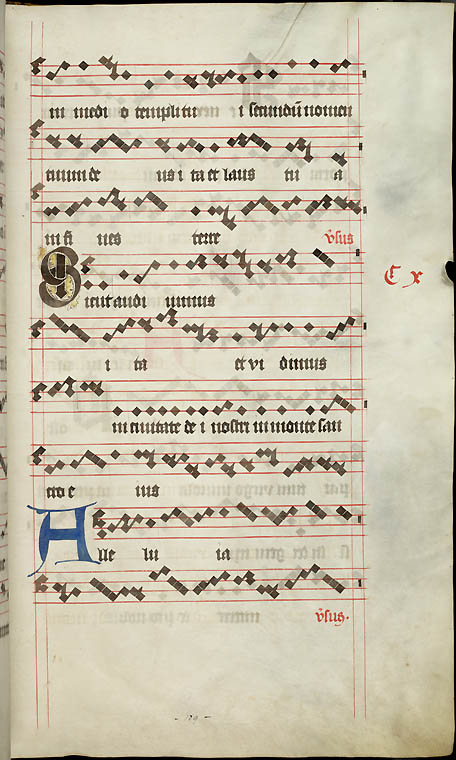 in medi o templi tu i secundū nomen
tuum de us i ta et laus tu a
in fi nes terre v̄sus
Sicut audi uimus
C x
i ta et vi dimus
in ciuitate de i nostri in monte san
cto e ius
Alle lu ia
v̄sus.